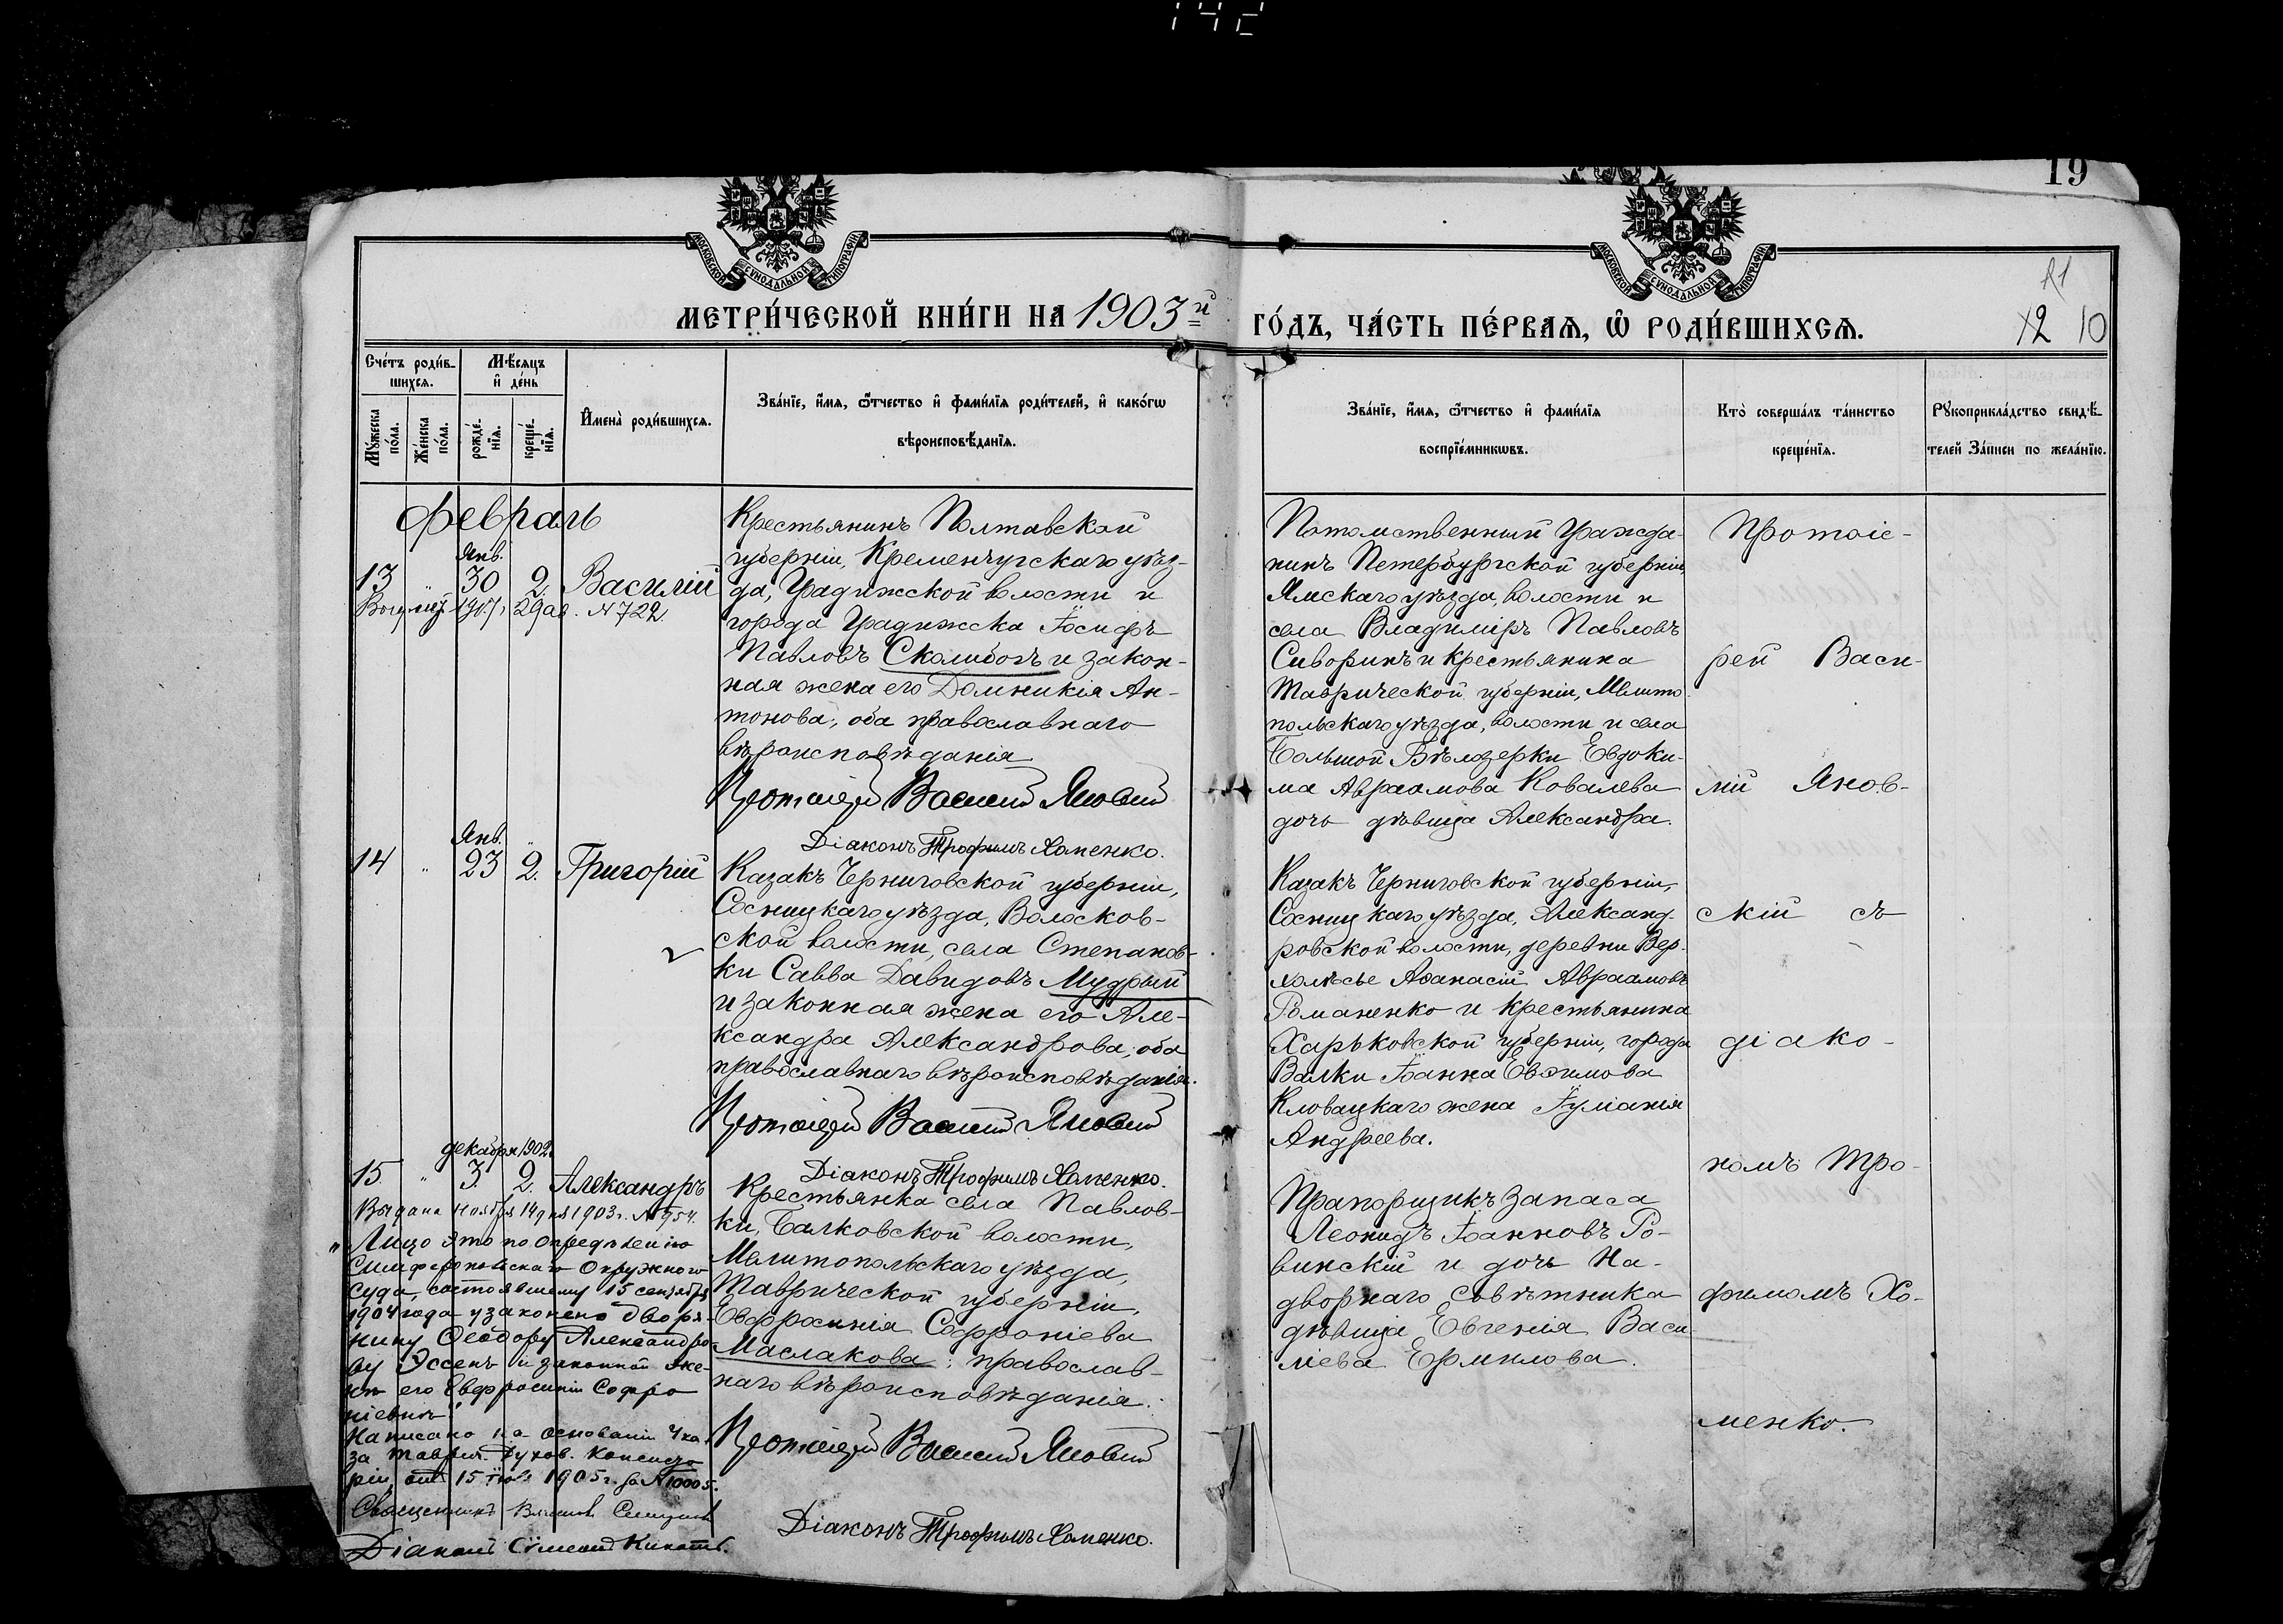 142
19
МОСКОВСКОЙ СѴНОДАЛЬНОЙ ТИПОГРАФІИ
МОСКОВСКОЙ СѴНОДАЛЬНОЙ ТИПОГРАФІИ
МЕТРИ́ЧЕСКОЙ КНИ́ГИ НА 1903й ГО́ДЪ, ЧА́СТЬ ПЕ́РВАѦ, Ѡ҆ РОДИ́ВШИХСѦ.
12 10
Сче́тъ роди́в-
шихсѧ.
Мѣ́сѧцъ
и҆ де́нь
Мꙋ́жеска
по́ла.
Же́нска
по́ла.
рожде́-
нїѧ.
креще́-
нїѧ.
И҆мена̀ роди́вшихсѧ.
Зва́нїе, и҆́мѧ, ѻ҆́тчество и҆ фами́лїѧ роди́телей, и҆ како́гѡ
вѣроисповѣ́данїѧ.
Зва́нїе, и҆́мѧ, ѻ҆́тчество и҆ фами́лїѧ
воспрїе́мникѡвъ.
Кто̀ соверша́лъ та́инство
креще́нїѧ.
Рꙋкоприкла́дство свидѣ́-
телей за́писи по жела́нїю.
Февраль
Янв.
13 " 30 2. Василій
1917г. 29 ав. № 722
Крестьянинъ Полтавской
губерніи, Кременчугскаго уѣз-
да, Градижской волости и
города Градижска Іосифъ
Павловъ Сколибогъ и закон-
ная жена его Домникія Ан-
тонова, оба православнаго
вѣроисповѣданія
Протоіерей Василій Яновскій
Діаконъ Трофимъ Хоменко.
Потомственный гражда-
нинъ Петербургской губерніи,
Ямскаго уѣзда, волости и
села Владиміръ Павловъ
Сиворинъ и крестьянина
Таврической губерніи, Мелито-
польскаго уѣзда, волости и села
Большой Бѣлозерки Евдоки-
ма Авраамова Ковалева
дочь дѣвица Александра.
Протоіе-
рей Васи-
лій Янов-
скій съ
діако-
номъ Тро-
фимомъ Хо-
менко.
Янв.
14 " 23 2. Григорій
Казакъ Черниговской губерніи,
Сосницкаго уѣзда, Волосков-
ской волости, села Степанов-
ки Савва Давидовъ Мудрый
и законная жена его Але-
ксандра Александрова, оба
православнаго вѣроисповѣданія.
Протоіерей Василій Яновскій
Діаконъ Трофимъ Хоменко.
Казакъ Черниговской губерніи,
Сосницкаго уѣзда, Александ-
ровской волости, деревни Вер-
холѣсье Аѳанасій Авраамовъ
Романенко и крестьянина
Харьковской губерніи, города
Валки Іоанна Евѳимова
Кловацкаго жена Іуліанія
Андреева.
декабря 1902.
15. " 3 2. Александръ
Выдана ноября 14 дня 1903 г. № 954.
"Лицо это по опредѣленію
Симферопольскаго Окружного
Суда, состоявшему 15 сентября
1904 года узаконено дворя-
нину Ѳеодору Александро-
ву Эссенъ и законной же-
нѣ его Евфросиніи Софро-
ніевнѣ".
Написано на основаніи Ука-
за Таврич. Духов. Консисто-
ріи отъ 15 1905 г. за № 10005.
Священникъ
Діаконъ Сѷмеонъ
Крестьянка села Павлов-
ки, Балковской волости,
Мелитопольскаго уѣзда,
Таврической губерніи,
Евфросинія Софроніева
Маслакова; православ-
наго вѣроисповѣданія.
Протоіерей Василій Яновскій
Діаконъ Трофимъ Хоменко.
Прапорщикъ запаса
Леонидъ Іоанновъ Ро-
винскій и дочь На-
дворнаго Совѣтника
дѣвица Евгенія Васи-
ліева Ермилова.